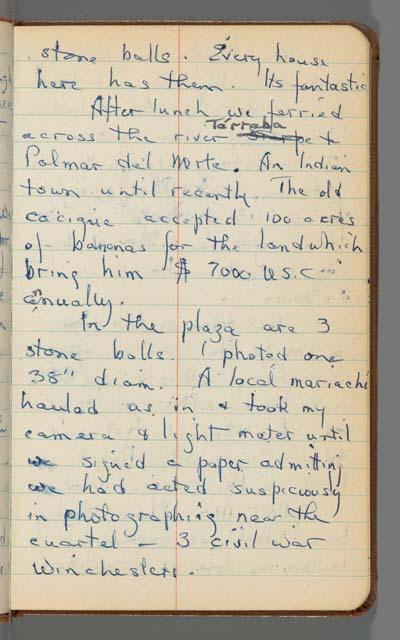 stone balls. Every house
here has them. Its fantastic
After lunch we ferried
Térraba
across the river to
Palmar del Norte. An Indian
town until recently. The old
cacique accepted 100 acres
of bananas for the land which
bring him $ 7000 U.S.C
annually.
In the plaza are 3
stone balls. I photoed one
38" diam. A local mariachi
hauled us in & took my
camera & light meter until
we signed a paper admitting
we had acted suspiciously
in photographing near the
cuartel – 3 civil war
Winchesters.